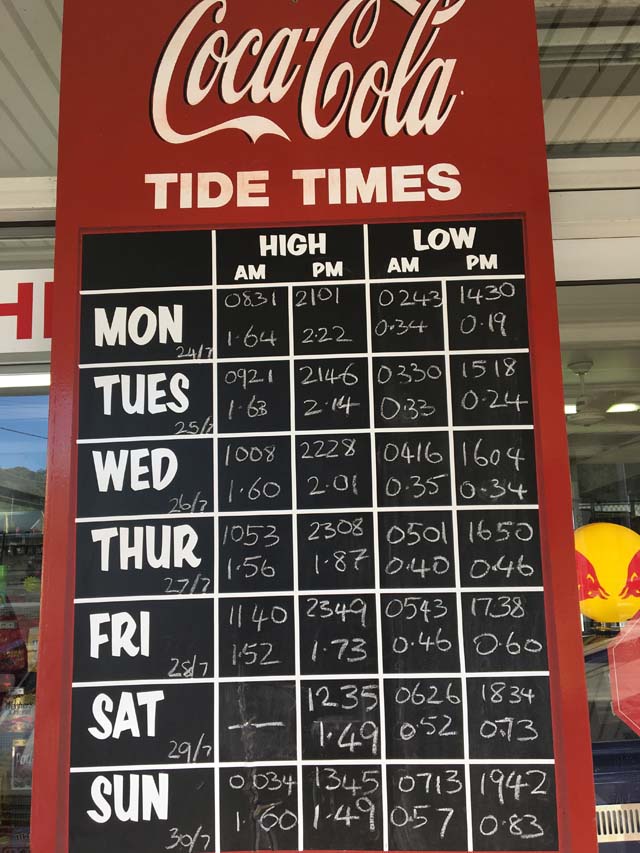 Coca-Cola
TIDE TIMES
HIGH LOW
AM PM AM PM
MON 24/7 0831 2101 0243 1430
1.64 2.22 0.34 0.19
TUES 25/7 0921 2146 0330 1518
1.63 2.14 0.33 0.24
WED 26/7 1008 2228 0416 1604
1.60 2.01 0.35 0.34
THUR 27/7 1053 2308 0501 1650
1.56 1.87 0.40 0.46
FRI 28/7 1140 2349 0543 1738
1.52 1.73 0.46 0.60
SAT 29/7 — 1235 0626 1834
1.49 0.52 0.73
SUN 30/7 0034 1345 0713 1942
1.60 1.49 0.57 0.83